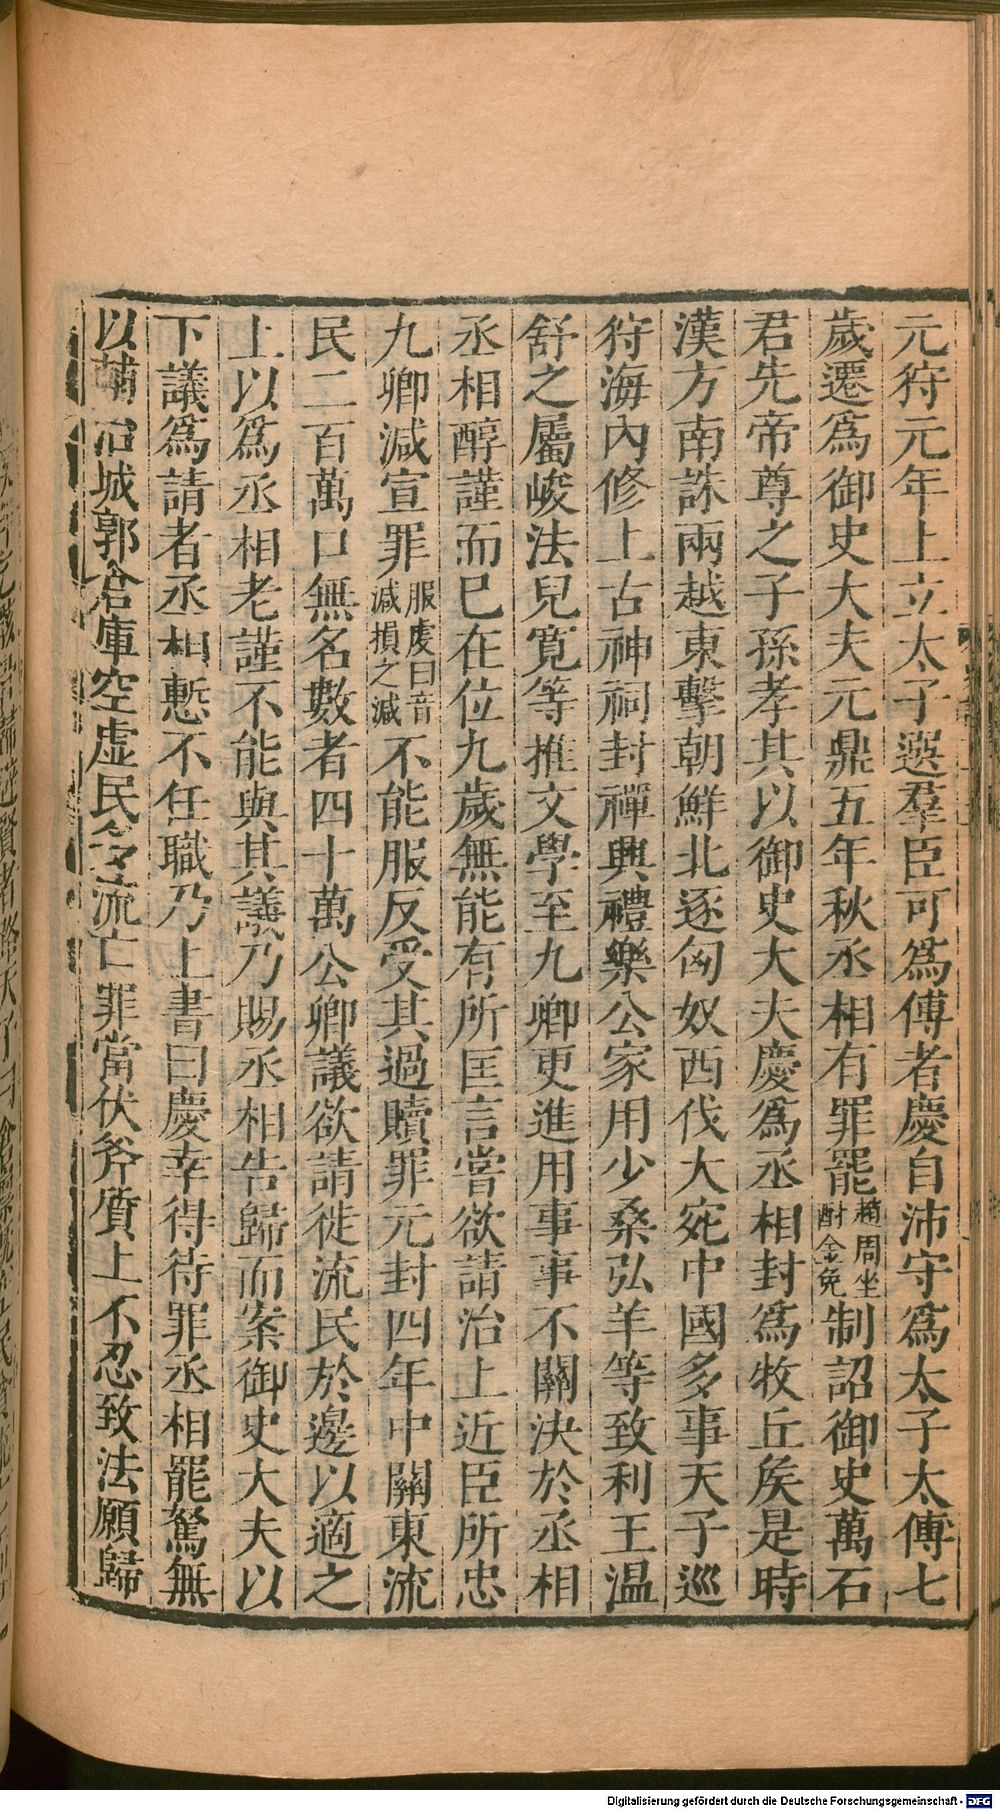 元狩元年上立太子選羣臣可爲傅者慶自沛守爲太子太傅七
歲遷爲御史大夫元鼎五年秋丞相有罪罷趙周坐酎金免制詔御史萬石
君先帝尊之子孫孝其以御史大夫慶爲丞相封爲牧丘矦是時
漢方南誅兩越東擊朝鮮北逐匈奴西伐大宛中國多事天子巡
狩海內修上古神祠封禪興禮樂公家用少桑弘羊等致利王温
舒之屬峻法兒寬等推文學至九卿更進用事事不關決於丞相
丞相醇謹而已在位九歲無能有所匡言嘗欲請治上近臣所忠
九卿減宣罪服虔曰音減損之減不能服反受其過贖罪元封四年中關東流
民二百萬口無名數者四十萬公卿議欲請徙流民於邊以適之
上以爲丞相老謹不能與其議乃賜丞相告歸而案御史大夫以
下議爲請者丞相慙不任職乃上書曰慶幸得待罪丞相罷駑無
以輔治城郭倉庫空虛民多流亡罪當伏斧質上不忍致法願歸
Digitalisierung gefördert durch die Deutsche Forschungsgemeinschaft - DFG